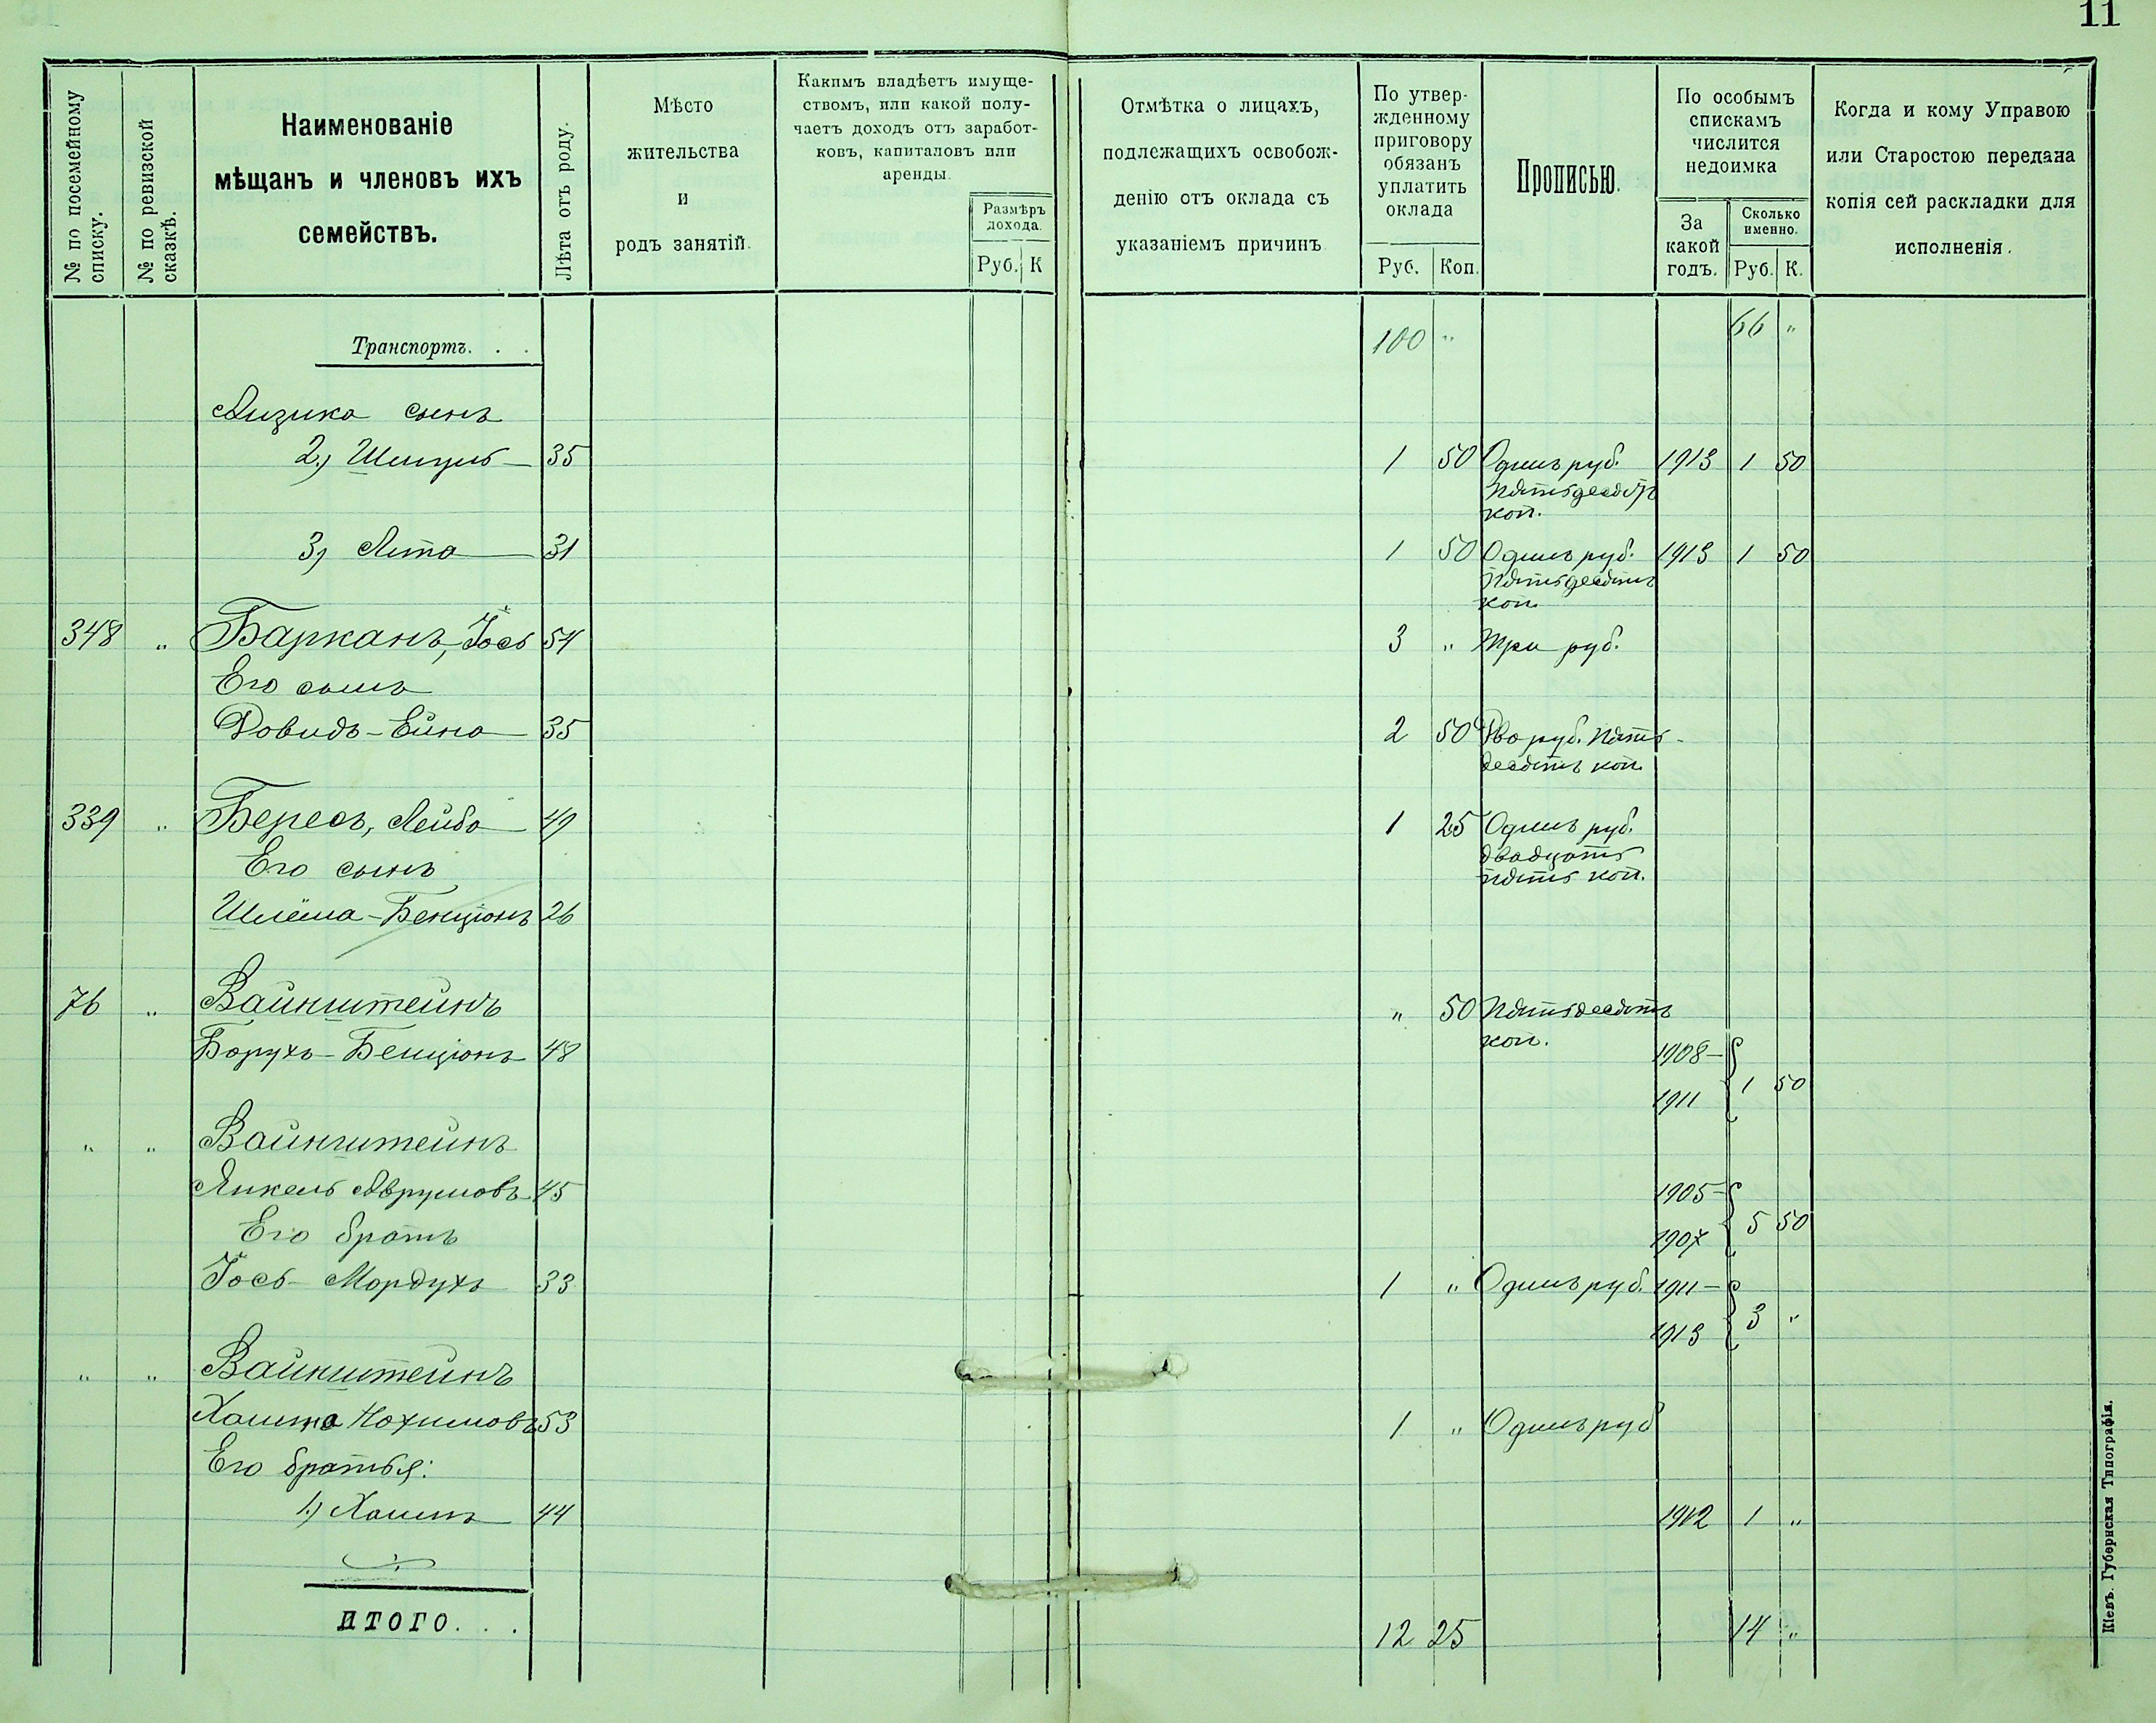 11
№ по посемейному списку.
№ по ревизской сказкѣ.
Наименованіе
мѣщанъ и членовъ ихъ
семействъ.
Лѣта отъ роду.
Мѣсто
жительства
и
родъ занятій.
Какимъ владѣетъ имуще-
ствомъ, или какой полу-
чаетъ доходъ отъ заработ-
ковъ, капиталовъ или
аренды.
Размѣръ
дохода.
Руб. К
Отмѣтка о лицахъ,
подлежащихъ освобож-
денію отъ оклада съ
указаніемъ причинъ
По утвер-
жденному
приговору
обязанъ
уплатить
оклада
Руб. Коп.
Прописью.
По особымъ
спискамъ
числится
недоимка
За
какой
годъ.
Сколько
именно.
Руб. К.
Когда и кому Управою
или Старостою передана
копія сей раскладки для
исполненія.
Транспортъ. . . 100 " 66 "
Айзика сынъ
2.) 35 1 50 Одинъ руб. 1913 1 50
пятьдесятъ
коп.
3) 31 1 50 Одинъ руб. 1913 1 50
пятьдесятъ
коп.
348 " Барканъ, Іось 54 3 " Три руб.
Его сынъ
Довидъ-Ейна 35 2 50 Два руб. пять-
десятъ коп.
339 " Бересъ, Лейба 49 1 25 Одинъ руб.
двадцать
пять коп.
Его сынъ
Шлёма-Бенціонъ 26
76 " Вайнштейнъ " 50 Пятьдесятъ
коп.
Борухъ-Бенціонъ 48 1908-
1911 1 50
" " Вайнштейнъ
Янкель Аврумовъ 45 1905-
1907 5 50
Его братъ
Іось-Мордухъ 33 1 " Одинъ руб. 1911-
1913 3 "
" " Вайнштейнъ
Нохимовъ 53 1 " Одинъ руб
Его братья:
1.) Хаимъ 44 1912 1 "
ИТОГО. . . 12 25 14 "
Кіевъ. Губернская Типографія.